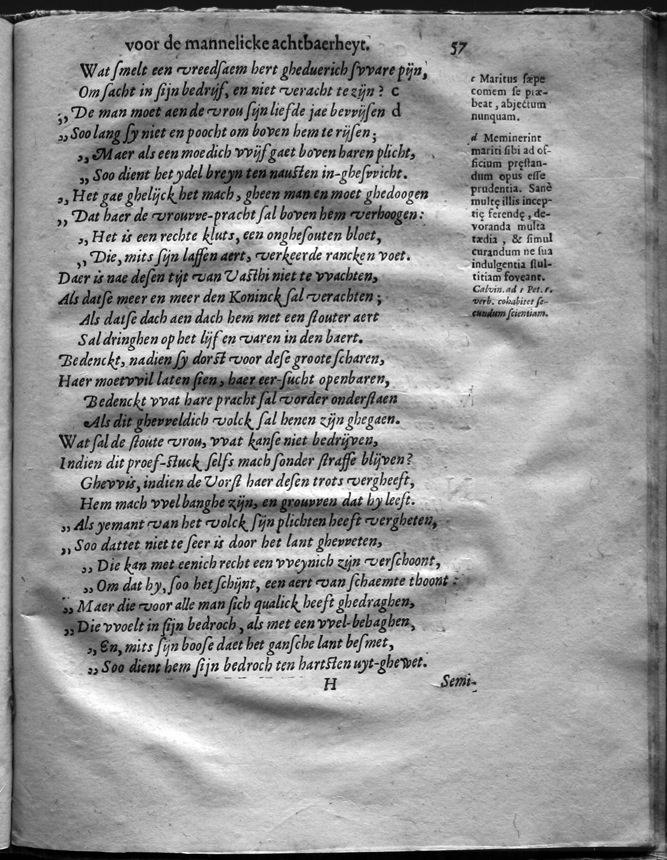 voor de mannelicke achtbaerheyt. 57
Wat smelt een vreedsaem hert gheduerich svvare pijn,
Om sacht in sijn bedrijf, en niet veracht te zijn? c
„ De man moet aen de vrou sijn liefde jae bevvijsen d
„ Soo lang sy niet en poocht om boven hem te rijsen;
„ Maer als een moedich vvijf gaet boven haren plicht,
„ Soo dient het ydel breyn ten nausten in-ghesvvicht.
„ Het gae ghelijck het mach, gheen man en moet ghedoogen
„ Dat haer de vrouvve-pracht sal boven hem verhoogen:
„ Het is een rechte kluts, een onghesouten bloet,
„ Die, mits sijn laffen aert, verkeerde rancken voet.
Daer is nae desen tijt van Vasthi niet te vvachten,
Als datse meer en meer den Koninck sal verachten;
Als datse dach aen dach hem met een stouter aert
Sal dringhen op het lijf en varen in den baert.
Bedenckt, nadien sy dorst voor dese groote scharen,
Haer moetvvil laten sien, haer eer-sucht openbaren,
Bedenckt vvat hare pracht sal vorder onderstaen
Als dit ghevveldich volck sal henen zijn ghegaen.
Wat sal de stoute vrou, vvat kanse niet bedrijven,
Indien dit proef-stuck selfs mach sonder straffe blijven?
Ghevvis, indien de Vorst haer desen trots vergheeft,
Hem mach vvel banghe zijn, en grouvven dat hy leeft.
„ Als yemant van het volck sijn plichten heeft vergheten,
„ Soo dattet niet te seer is door het lant ghevveten,
„ Die kan met eenich recht een vveynich zijn verschoont,
„ Om dat hy, soo het schijnt, een aert van schaemte thoont:
„ Maer die voor alle man sich qualick heeft ghedraghen,
„ Die vvoelt in sijn bedroch, als met een vvel-behaghen,
„ En, mits sijn boose daet het gansche lant besmet,
„ Soo dient hem sijn bedroch ten hartsten uyt-ghewet.
H Semi-
c Maritus sæpe
comem se præ-
beat, abjectum
nunquam.
d Meminerint
mariti sibi ad of-
ficium pręstan-
dum opus esse
prudentia. Sanè
multę illis incep-
tię ferendę, de-
voranda multa
tædia, & simul
curandum ne sua
indulgentia stul-
titiam foveant.
Calvin. ad 1 Pet. 1.
verb. cohabites se-
cundum scientiam.